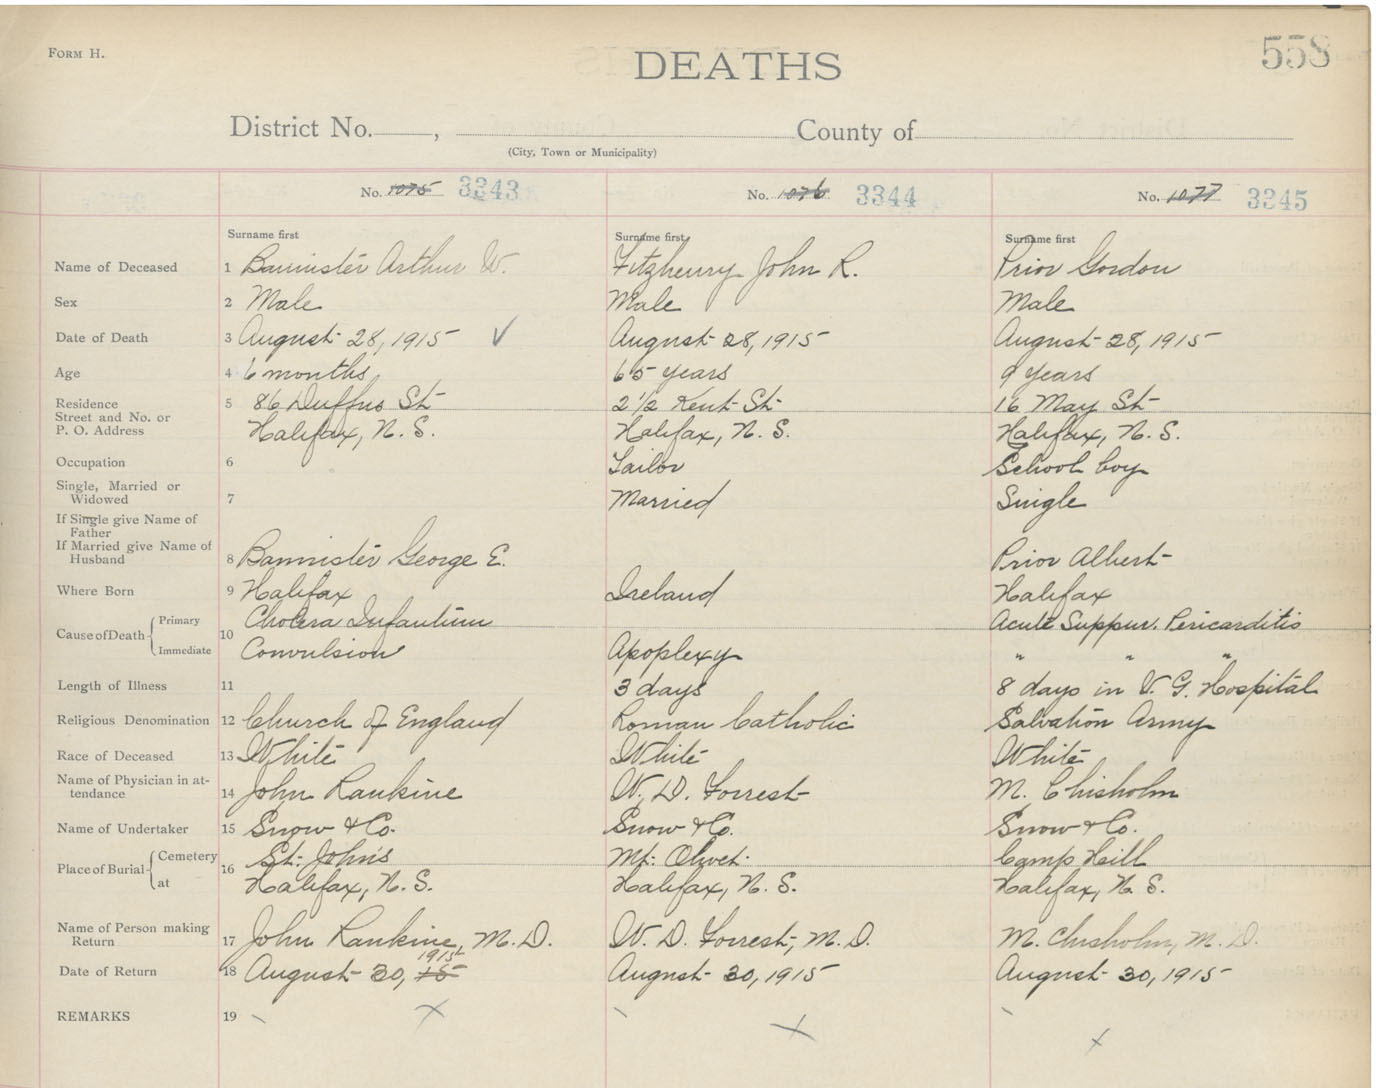 FORM H.
DEATHS
558
District No. , County of
(City, Town or Municipality)
No. 1075 3343 No. 1076 3344 No. 1077 3245
Surname first Surname first Surname first
Name of Deceased 1 Bannister Arthur W. Fitzhenry John R. Prior Gordon
Sex 2 Male Male Male
Date of Death 3 August 28, 1915 ✓ August 28, 1915 August 28, 1915
Age 4 6 months 65 years 9 years
Residence 5 86 Duffus St 2 1/2 Kent St 16 May St
Street and No. or
P. O. Address Halifax, N. S. Halifax, N. S. Halifax, N. S.
Occupation 6 Tailor School boy
Single, Married or
Widowed 7 Married Single
If Single give Name of
Father
If Married give Name of
Husband 8 Bannister George E. Prior Albert
Where Born 9 Halifax Ireland Halifax
Cause of Death Primary 10 Cholera Infantum Acute Suppur. Pericarditis
Immediate Convulsion Apoplexy " " "
Length of Illness 11 3 days 8 days in V. G. Hospital
Religious Denomination 12 Church of England Roman Catholic Salvation Army
Race of Deceased 13 White White White
Name of Physician in at-
tendance 14 John Rankine W. D. Forrest M. Chisholm
Name of Undertaker 15 Snow & Co. Snow & Co. Snow & Co.
Place of Burial Cemetery 16 St. John's Mt. Olivet Camp Hill
at Halifax, N. S. Halifax, N. S. Halifax, N. S.
Name of Person making
Return 17 John Rankine, M. D. W. D. Forrest, M. D. M. Chisholm, M. D.
Date of Return 18 August 30, 15 1915 August 30, 1915 August 30, 1915
REMARKS 19